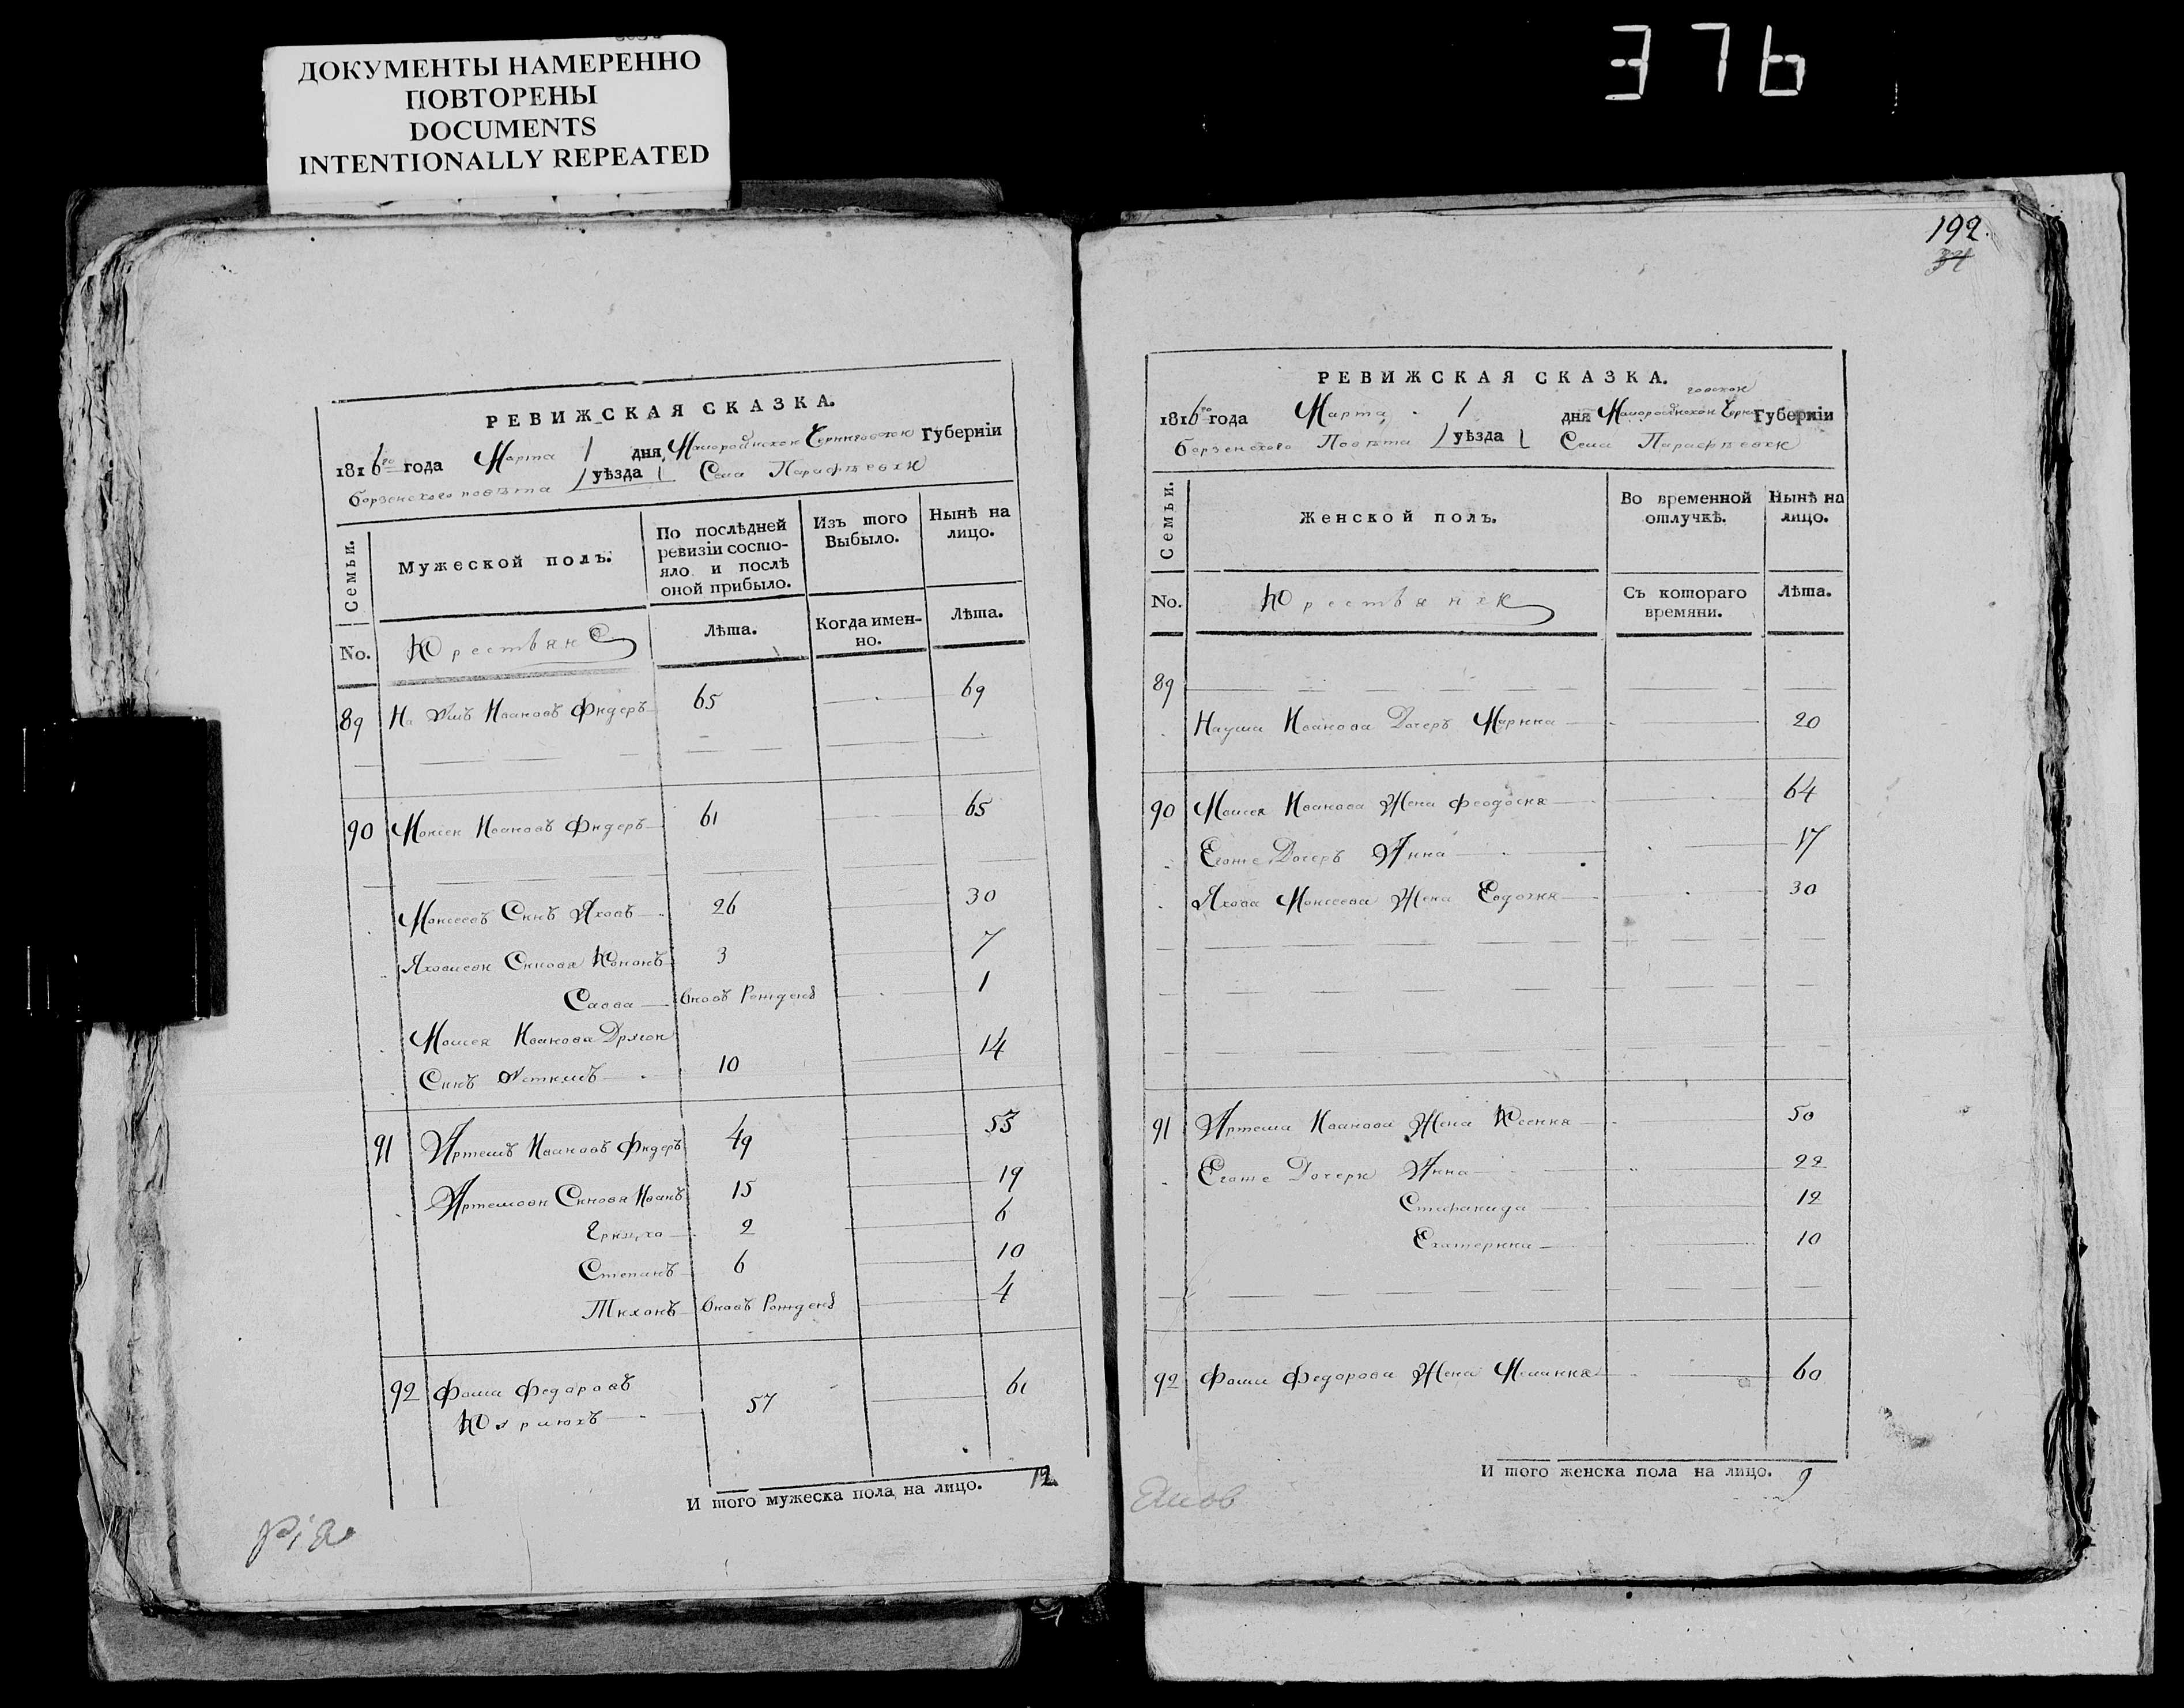 ДОКУМЕНТЫ НАМЕРЕННО
ПОВТОРЕНЫ
DOCUMENTS
INTENTIONALLY REPEATED
376
РЕВИЖСКАЯ СКАЗКА.
1816го года Марта 1 дня Малоросійской Черниговской Губерніи
борзенского повѣта уѣзда Села Парафѣевки
Семьи.
Мужеской полъ.
По послѣдней
ревизіи состо-
яло и послѣ
оной прибыло.
Изъ того
Выбыло.
Нынѣ на
лицо.
No.
Крестьяне
Лѣта.
Когда имен-
но.
Лѣта.
89 Наумъ Ивановъ Фидеръ 65 69
90 Моисей Ивановъ Фидеръ 61 65
Моисеевъ Синъ Яковъ 26 30
Яковлевы Синовя Кононъ 3 7
Савва вновь Рожденъ 1
Моисея Иванова Другой
Синъ 10 14
91 Артемъ Ивановъ Фидеръ 49 53
Артемови Синовя Иванъ 15 19
2 6
Степанъ 6 10
Тихонъ вновь Рожденъ 4
92 Фома Федоровъ
57 61
И того мужеска пола на лицо. 12
192
34
РЕВИЖСКАЯ СКАЗКА.
говской
1816го года Марта 1 дня Малоросійской Черни Губерніи
борзенского Повѣта уѣзда Села Парафѣевки
Семьи.
Женской полъ.
Во временной
отлучкѣ.
Нынѣ на
лицо.
No.
Крестьянки
Съ котораго
времяни.
Лѣта.
89
Наума Иванова Дочеръ Марина 20
90 Моисея Иванова Жена Феодосия 64
Егоже Дочеръ Анна 17
Якова Моисеева Жена Евдокия 30
91 Артема Иванова Жена Ксения 50
Егоже Дочери Анна 22
Стефанида 12
Екатерина 10
92 Фоми Федорова Жена Мелания 60
И того женска пола на лицо. 9